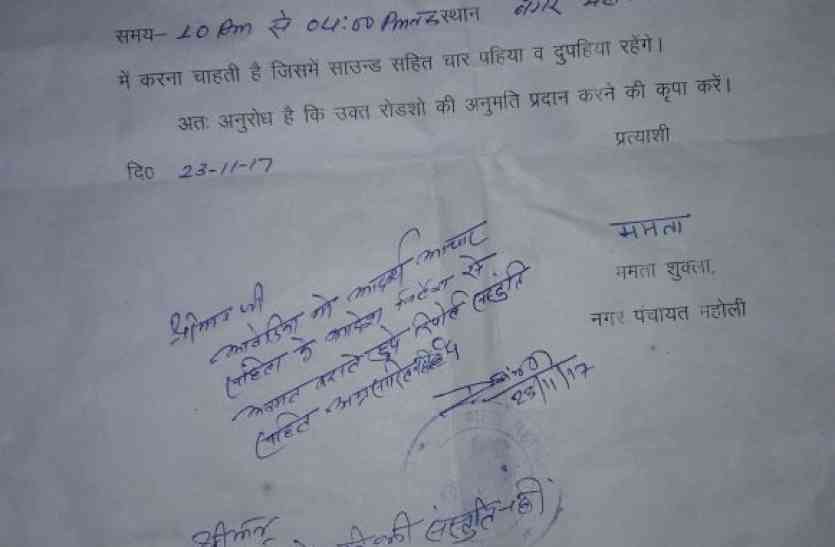 समय- 10 Am से 04:00 Pm तक स्थान नगर
में करना चाहती है जिसमें साउन्ड सहित चार पहिया व दुपहिया रहेंगे।
अतः अनुरोध है कि उक्त रोडशो की अनुमति प्रदान करने की कृपा करें।
प्रत्याशी
दि0 23-11-17
ममता
ममता शुक्ला,
नगर पंचायत महोली
श्रीमान जी
आवेदिका को आदर्श आचार
संहिता के आदेश निर्देश से
अवगत कराते हुये रिपोर्ट संस्तुति
सहित अग्रसारित
23/11/17
श्रीमान
की संस्तुति की